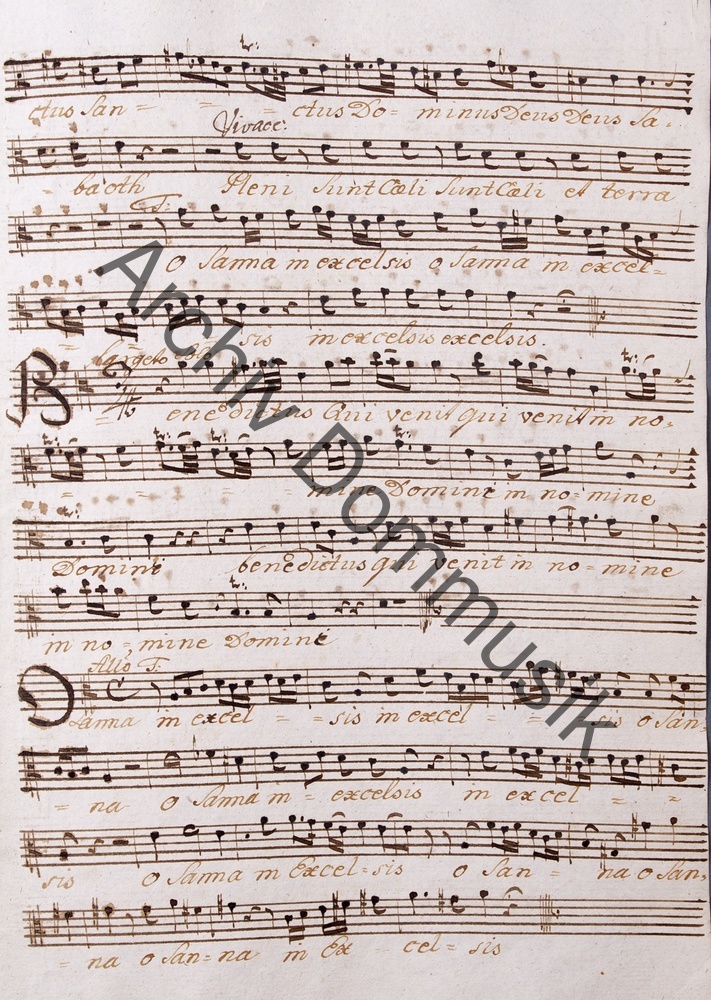 ctus San = = = ctus Do = minus Deus Deus Sa =
Vivace.
= baoth Pleni Sunt Cœli Sunt Cœli et terra
T:
O Sanna in excelsis o Sanna in excel =
= = = sis in excelsis excelsis.
Largeto Solo
Benedictus Qui venit qui venit in no =
= = = = mine Domini in no = mine
Domini benedictus qui venit in no = mine
in no = mine Domini
Allo T:
O Sanna in excel = = sis in excel = = = sis o San =
= na o Sanna in = excelsis in excel = =
sis o Sanna in Excel = sis o San = na o San =
= na o San = na in Ex = cel = sis
Archiv Dommusik